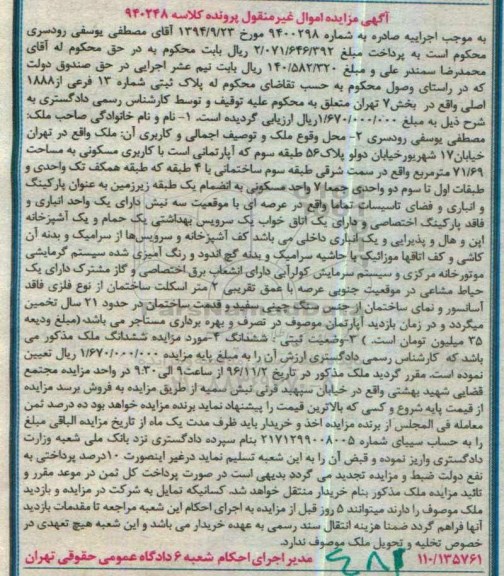 آگهی مزایده اموال غیرمنقول پرونده کلاسه ۹۴۰۲۴۸
به موجب اجراییه صادره به شماره ۹۴۰۰۲۹۸ مورخ ۱۳۹۴/۹/۲۳ آقای مصطفی یوسفی رودسری
محکوم است به پرداخت مبلغ ۲/۰۷۱/۶۴۶/۳۹۲ ریال بابت محکوم به در حق محکوم له آقای
محمدرضا سمندر علی و مبلغ ۱۴۰/۵۸۲/۳۲۰ ریال بابت نیم عشر اجرایی در حق صندوق دولت
که در راستای وصول محکوم به حسب تقاضای محکوم له پلاک ثبتی شماره ۱۳ فرعی از۱۸۸۸
اصلی واقع در بخش۷ تهران متعلق به محکوم علیه توقیف و توسط کارشناس رسمی دادگستری به
شرح ذیل به مبلغ ۱/۶۷۰/۰۰۰/۰۰۰ریال ارزیابی گردیده است. ۱- نام و نام خانوادگی صاحب ملک:
مصطفی یوسفی رودسری ۲- محل وقوع ملک و توصیف اجمالی و کاربری آن: ملک واقع در تهران
خیابان۱۷ شهریورخیابان دولو پلاک۵۶ طبقه سوم که آپارتمانی است با کاربری مسکونی به مساحت
۷۱/۶۹ مترمربع واقع در سمت شرقی طبقه سوم ساختمانی با ۴ طبقه که طبقه همکف تک واحدی و
طبقات اول تا سوم دو واحدی جمعا ۷ واحد مسکونی به انضمام یک طبقه زیرزمین به عنوان پارکینگ
و انباری و فضای تاسیسات تماما واقع در عرصه ای با موقعیت سه نبش دارای یک واحد انباری و
فاقد پارکینگ اختصاصی و دارای یک اتاق خواب یک سرویس بهداشتی یک حمام و یک آشپزخانه
اپن و هال و پذیرایی و یک انباری داخلی می باشد کف آشپزخانه و سرویس‌ها از سرامیک و بدنه آن
کاشی و کف اتاقها موزائیک با حاشیه سرامیک و بدنه گچ اندود و رنگ آمیزی شده سیستم گرمایشی
موتورخانه مرکزی و سیستم سرمایش کولرآبی دارای انشعاب برق اختصاصی و گاز مشترک دارای یک
حیاط مشاعی در موقعیت جنوبی عرصه با عمق تقریبی ۲ متر اسکلت ساختمان از نوع فلزی فاقد
آسانسور و نمای ساختمان از جنس سنگ سفید و قدمت ساختمان در حدود ۲۱ سال تخمین
میگردد و در زمان بازدید آپارتمان موصوف در تصرف و بهره برداری مستأجر می باشد. (مبلغ ودیعه
۳۵ میلیون تومان است. ) ۳-وضعیت ثبتی : ششدانگ ۴-مورد مزایده ششدانگ ملک مذکور می
باشد که کارشناس رسمی دادگستری ارزش آن را به مبلغ پایه مزایده ۱/۶۷۰/۰۰۰/۰۰۰ ریال تعیین
نموده است. مقرر گردید ملک مذکور در تاریخ ۹۶/۱۱/۲ از ساعت۹ الی ۹:۳۰ در واحد مزایده مجتمع
قضایی شهید بهشتی واقع در خیابان سپهبد قرنی نبش سمیه از طریق مزایده به فروش برسد مزایده
از قیمت پایه شروع و کسی که بالاترین قیمت را پیشنهاد نماید برنده مزایده خواهد بود ده درصد ثمن
معامله فی المجلس از برنده مزایده اخذ و خریدار باید ظرف مدت یک ماه از تاریخ مزایده الباقی مبلغ
را به حساب سیبای شماره ۲۱۷۱۲۹۹۰۰۸۰۰۵ بنام سپرده دادگستری نزد بانک ملی شعبه وزارت
دادگستری واریز نموده و قبض آن را به این شعبه تسلیم نماید درغیر اینصورت ۱۰درصد پرداختی به
نفع دولت ضبط و مزایده تجدید می گردد بدیهی است در صورت پرداخت کل ثمن در موعد مقرر و
تائید مزایده ملک مذکور بنام خریدار منتقل خواهد شد. کسانیکه تمایل به شرکت در مزایده و بازدید
ملک موصوف را دارند میتوانند ۵ روز قبل از مزایده به اجرای احکام این شعبه مراجعه تا مقدمات بازدید
آنها فراهم گردد ضمنا هزینه انتقال سند رسمی به عهده خریدار می باشد و این شعبه هیچ تعهدی در
خصوص تخلیه و تحویل ملک موصوف ندارد.
۱۱۰/۱۳۵۷۶۱ مدیر اجرای احکام شعبه ۶ دادگاه عمومی حقوقی تهران